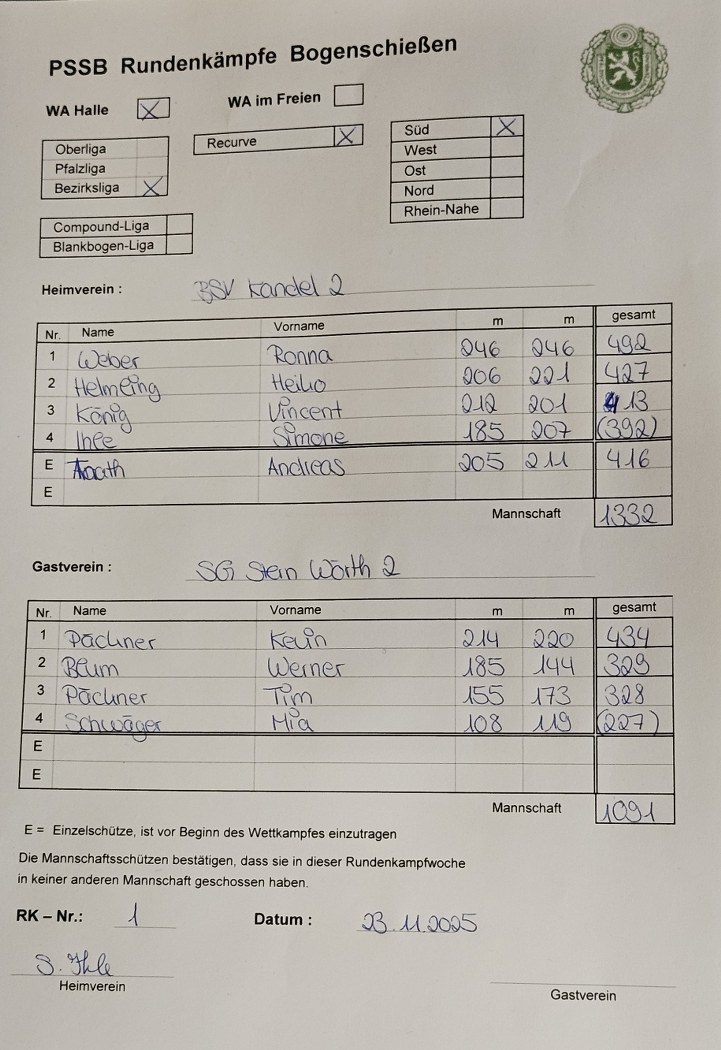 PSSB Rundenkämpfe Bogenschießen
WA Halle X WA im Freien
Oberliga
Pfalzliga
Bezirksliga X
Recurve X
Süd X
West
Ost
Nord
Rhein-Nahe
Compound-Liga
Blankbogen-Liga
Heimverein : BSV Kandel 2
Nr. Name Vorname m m gesamt
1 Weber Ronna 246 246 492
2 Helmeing Heiko 206 221 427
3 König Vincent 212 201 413
4 Ihle Simone 185 207 (392)
E Andreas 205 211 416
E
Mannschaft 1332
Gastverein : SG Stein Wörth 2
Nr. Name Vorname m m gesamt
1 Pächner Kevin 214 220 434
2 Blum Werner 185 144 329
3 Pächner Tim 155 173 328
4 Schwäger Mia 108 119 (227)
E
E
Mannschaft 1091
E = Einzelschütze, ist vor Beginn des Wettkampfes einzutragen
Die Mannschaftsschützen bestätigen, dass sie in dieser Rundenkampfwoche
in keiner anderen Mannschaft geschossen haben.
RK – Nr.: 1 Datum : 23.11.2025
S. Ihle
Heimverein
Gastverein